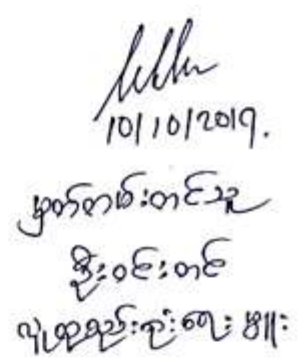 10/10/2019.
မှတ်တမ်းတင်သူ
ဦးဝင်းတင်
လှုံ့ဆော်စည်းရုံးရေးမှူး